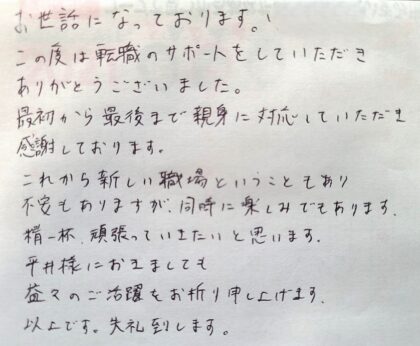 お世話になっております。
この度は転職のサポートをしていただき
ありがとうございました。
最初から最後まで親身に対応していただき
感謝しております。
これから新しい職場ということもあり
不安もありますが、同時に楽しみでもあります。
精一杯、頑張っていきたいと思います。
平井様におきましても
益々のご活躍をお祈り申し上げます。
以上です。失礼致します。